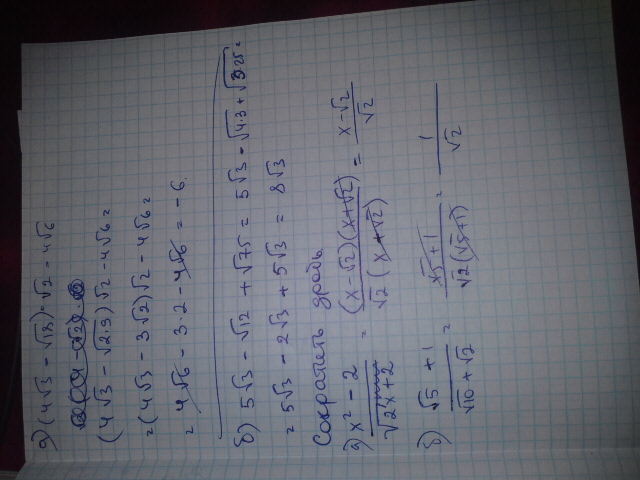 а) (4√3 - √18)·√2 - 4√6
(4√3 - √2·9)√2 - 4√6 =
= (4√3 - 3√2)√2 - 4√6 =
= 4√6 - 3·2 - 4√6 = -6.
б) 5√3 - √12 + √75 = 5√3 - √4·3 + √3·25 =
= 5√3 - 2√3 + 5√3 = 8√3
Сократить дробь
а) x² - 2 / √2x + 2 = (x - √2)(x + √2) / √2 (x + √2) = x - √2 / √2
б) √5 + 1 / √10 + √2 = √5 + 1 / √2(√5 + 1) = 1 / √2